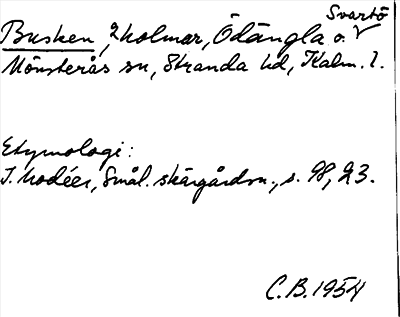 Svartö
Busken, 2 holmar, Ödängla o. V
Mönsterås sn, Stranda hd, Kalm. l.
Etymologi:
I. Modéer, Smål. skärgårdsn., s. 98, 23.
C.B. 1954